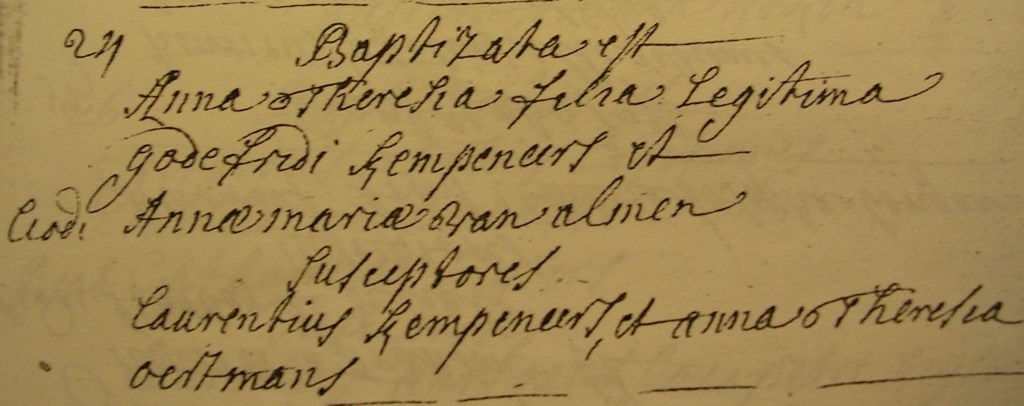 24 Baptizata est
Anna Theresia filia Legitima
godefridi Kempeneers et
Annæ mariæ van almen
Susceptores
Laurentius Kempeneers, et anna Theresia
oertmans